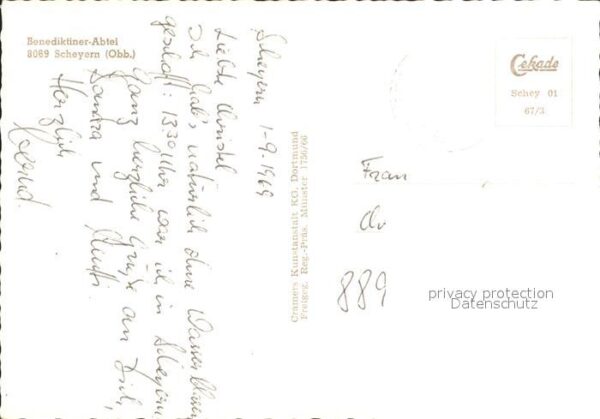 Benediktiner-Abtei
8069 Scheyern (Obb.)
Scheyern 1-9-1969
Liebe Christel
Ich hab's natürlich ohne
geschafft: 13.30 Uhr war ich in Scheyern
Ganz herzliche Grüße an Dich,
Sandra und Mutti.
Herzlich
Bernd.
Cramers Kunstanstalt KG, Dortmund
Freigeg. Reg.-Präs. Münster 1750/66
Cekade
Schey 01
67/3
Frau
889
privacy protection
Datenschutz